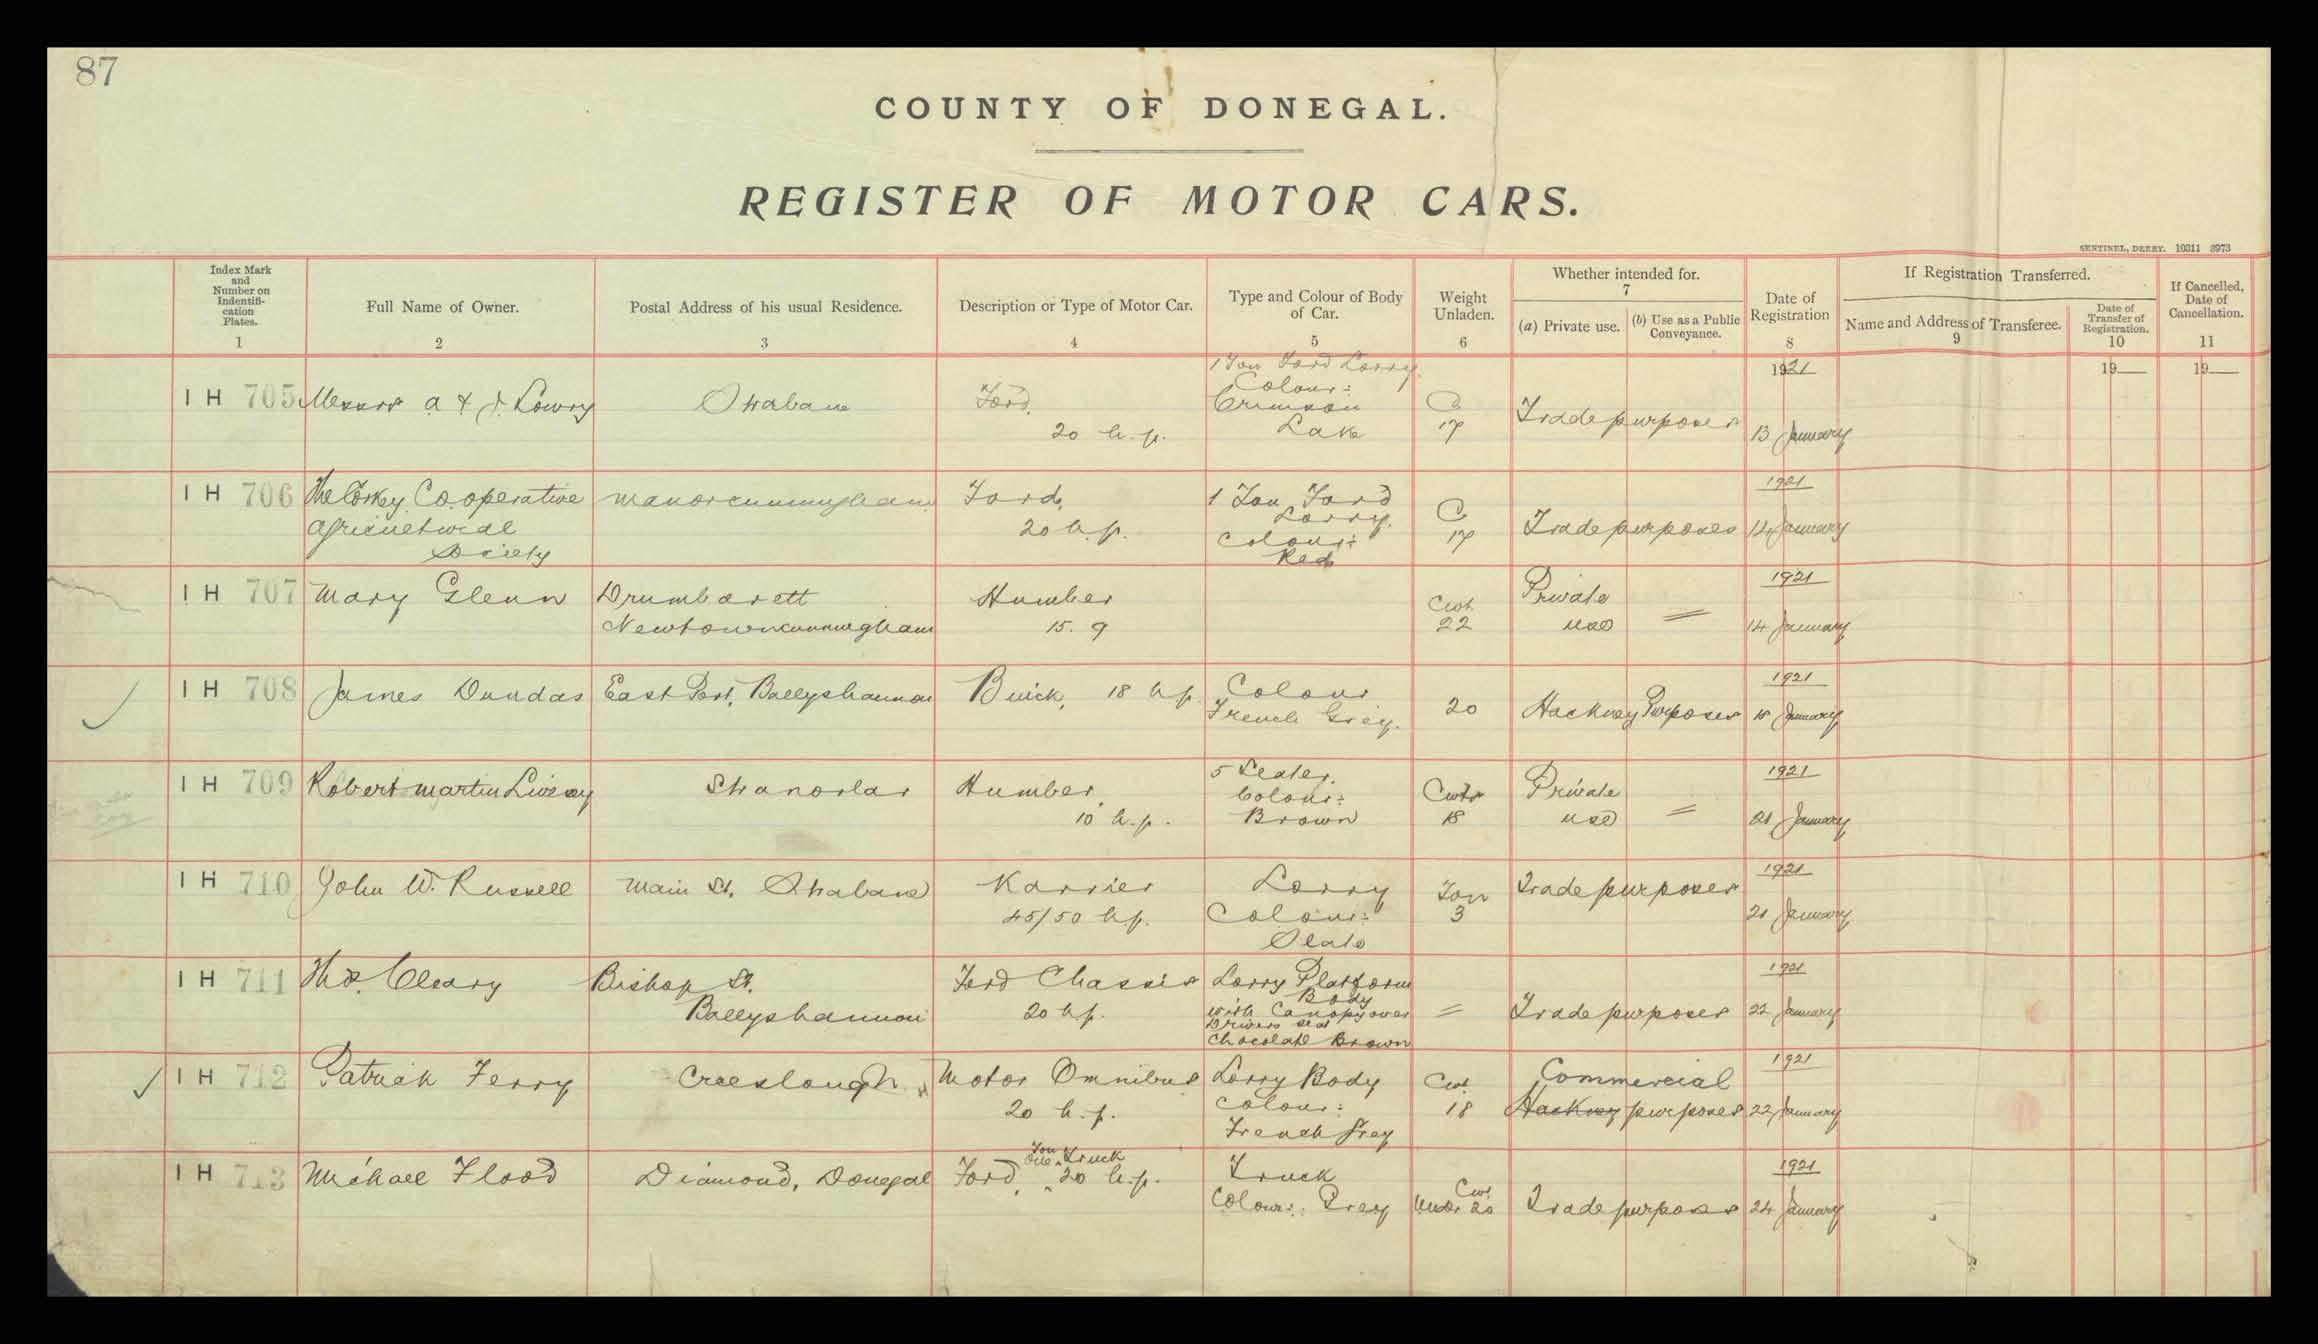 87
COUNTY OF DONEGAL.
REGISTER OF MOTOR CARS.
SENTINEL, DERRY. 10311 8973
Index Mark and Number on Indentifi-cation Plates. 1
Full Name of Owner. 2
Postal Address of his usual Residence. 3
Description or Type of Motor Car. 4
Type and Colour of Body of Car. 5
Weight Unladen. 6
Whether intended for. 7
(a) Private use.
(b) Use as a Public Conveyance.
Date of Registration 8
If Registration Transferred.
Name and Address of Transferee. 9
Date of Transfer of Registration. 10
If Cancelled, Date of Cancellation. 11
1921 19 19
1 Ton Ford Lorry
IH 705 Messrs A & J. Lowry Strabane Ford, Colour: Crimson C Trade purposes
20 h.p. Lake 17 13 January
1921
IH 706 The Corkey Co.operative Manorcunningham Ford, 1 Ton Ford C
Agricultural 20 h.p. Lorry. 17 Trade purposes 14 January
Society Colour: Red
1921
IH 707 Mary Glenn Drumbarett Humber Cwt. Private
Newtowncunningham 15.9 22 use = 14 January
1921
IH 708 James Dundas East Port, Ballyshannon Buick, 18 h.p. Colour
French Grey. 20 Hackney Purposes 18 January
1921
IH 709 Robert Martin Livesay Stranorlar Humber, 5 Seater. Cwts Private
10 h.p. Colour: Brown 18 use = 21 January
1921
IH 710 John W. Russell Main St, Strabane Karrier Lorry Ton Trade purposes
45/50 h.p. Colour: 3 21 January
Slate
1921
IH 711 Thos. Cleary Bishop St. Ford Chassis Lorry Platform
Ballyshannon 20 h.p. Body with Canopy over = Trade purposes 22 January
Drivers seat
Chocolate Brown
1921
IH 712 Patrick Ferry Creeslough Motor Omnibus Lorry Body Cwt. Commercial
20 h.p. Colour: 18 Hackney purposes 22 January
French Grey
One Ton Truck 1921
IH 713 Michael Flood Diamond, Donegal Ford, 20 h.p. Truck Cwt
Colour: Grey Under 20 Trade purposes 24 January